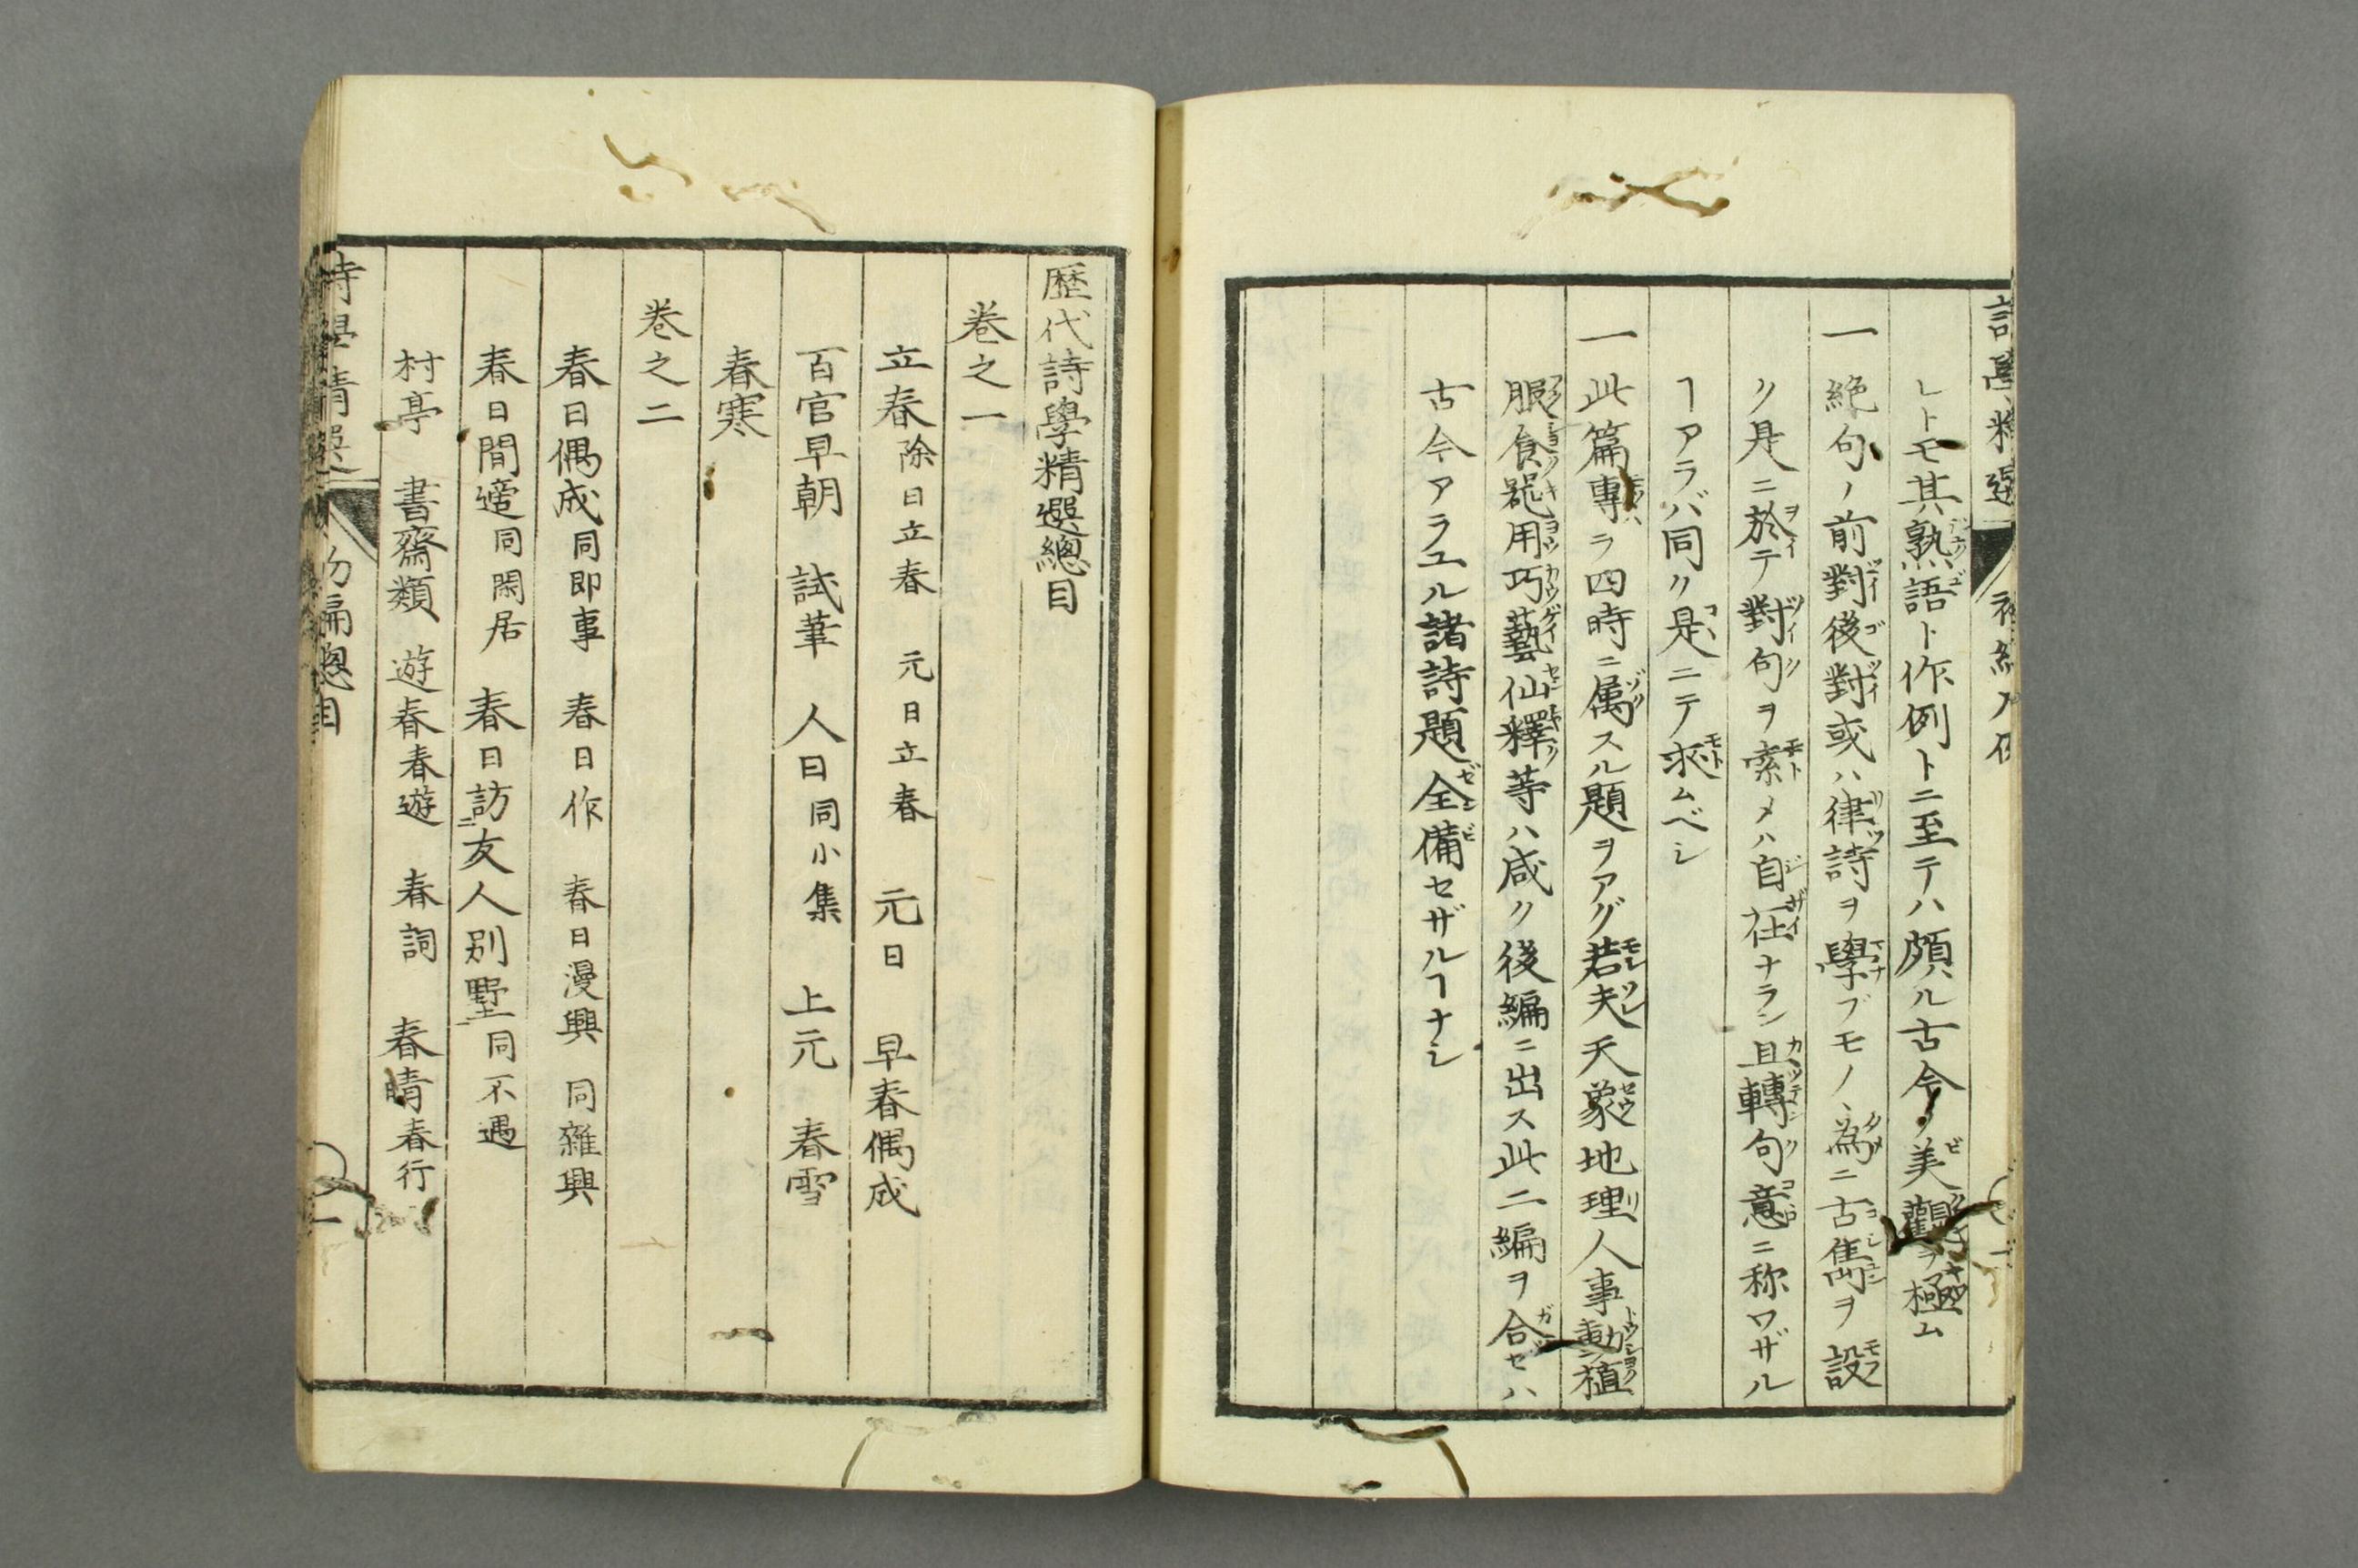 レトモ其熟語ト作例トニ至テハ頗ル古今ノ美觀ヲ極ム
一 絶句ノ前對後對或ハ律詩ヲ學ブモノヽ為ニ古雋ヲ設
ク是ニ於テ對句ヲ索メハ自在ナラン且轉句意ニ称ワザル
ヿアラバ同ク是ニテ求ムベシ
一 此篇專ラ四時ニ属スル題ヲアグ若夫天象地理人事動植
服食噐用巧藝仙釋等ハ咸ク後編ニ出ス此二編ヲ合セハ
古今アラユル諸詩題全備セザルヿナシ
歴代詩學精選總目
巻之一
立春 除日立春 元日立春 元日 早春偶成
百官早朝 試筆 人日 同小集 上元 春雪
春寒
巻之二
春日偶成 同即事 春日作 春日漫興 同雜興
春日間遊 同閑居 春日訪友人別墅 同不遇
村亭 書齋類 遊春 春遊 春詞 春晴 春行